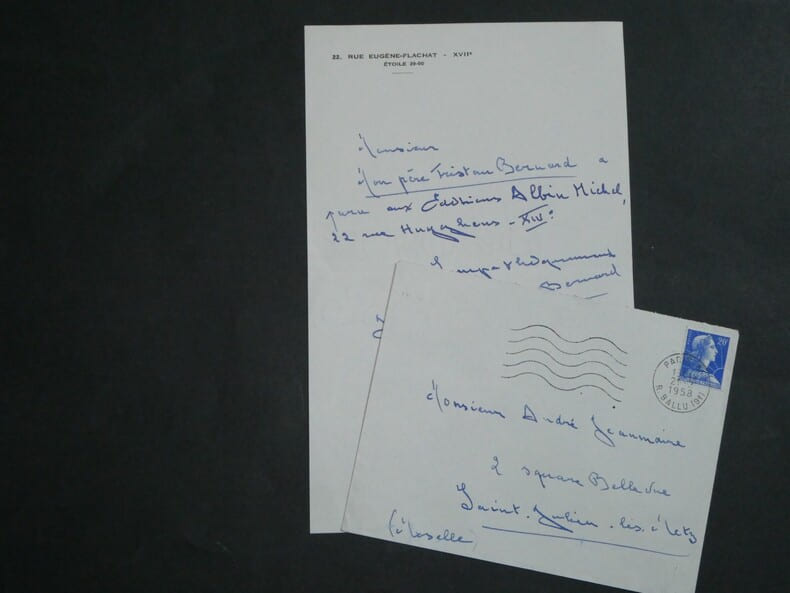 22, RUE EUGÈNE-FLACHAT - XVIIᵉ
ÉTOILE 29-00
Monsieur
Mon père Tristan Bernard a
paru aux Éditions Albin Michel,
22 rue Huyghens - XIVᵉ.
Bernard
20ᶠ
PARIS
1958
R. BALLU (9ᵉ)
Monsieur André Jeanmaire
2 square Bellevue
Saint-Julien-lès-Metz
(Moselle)